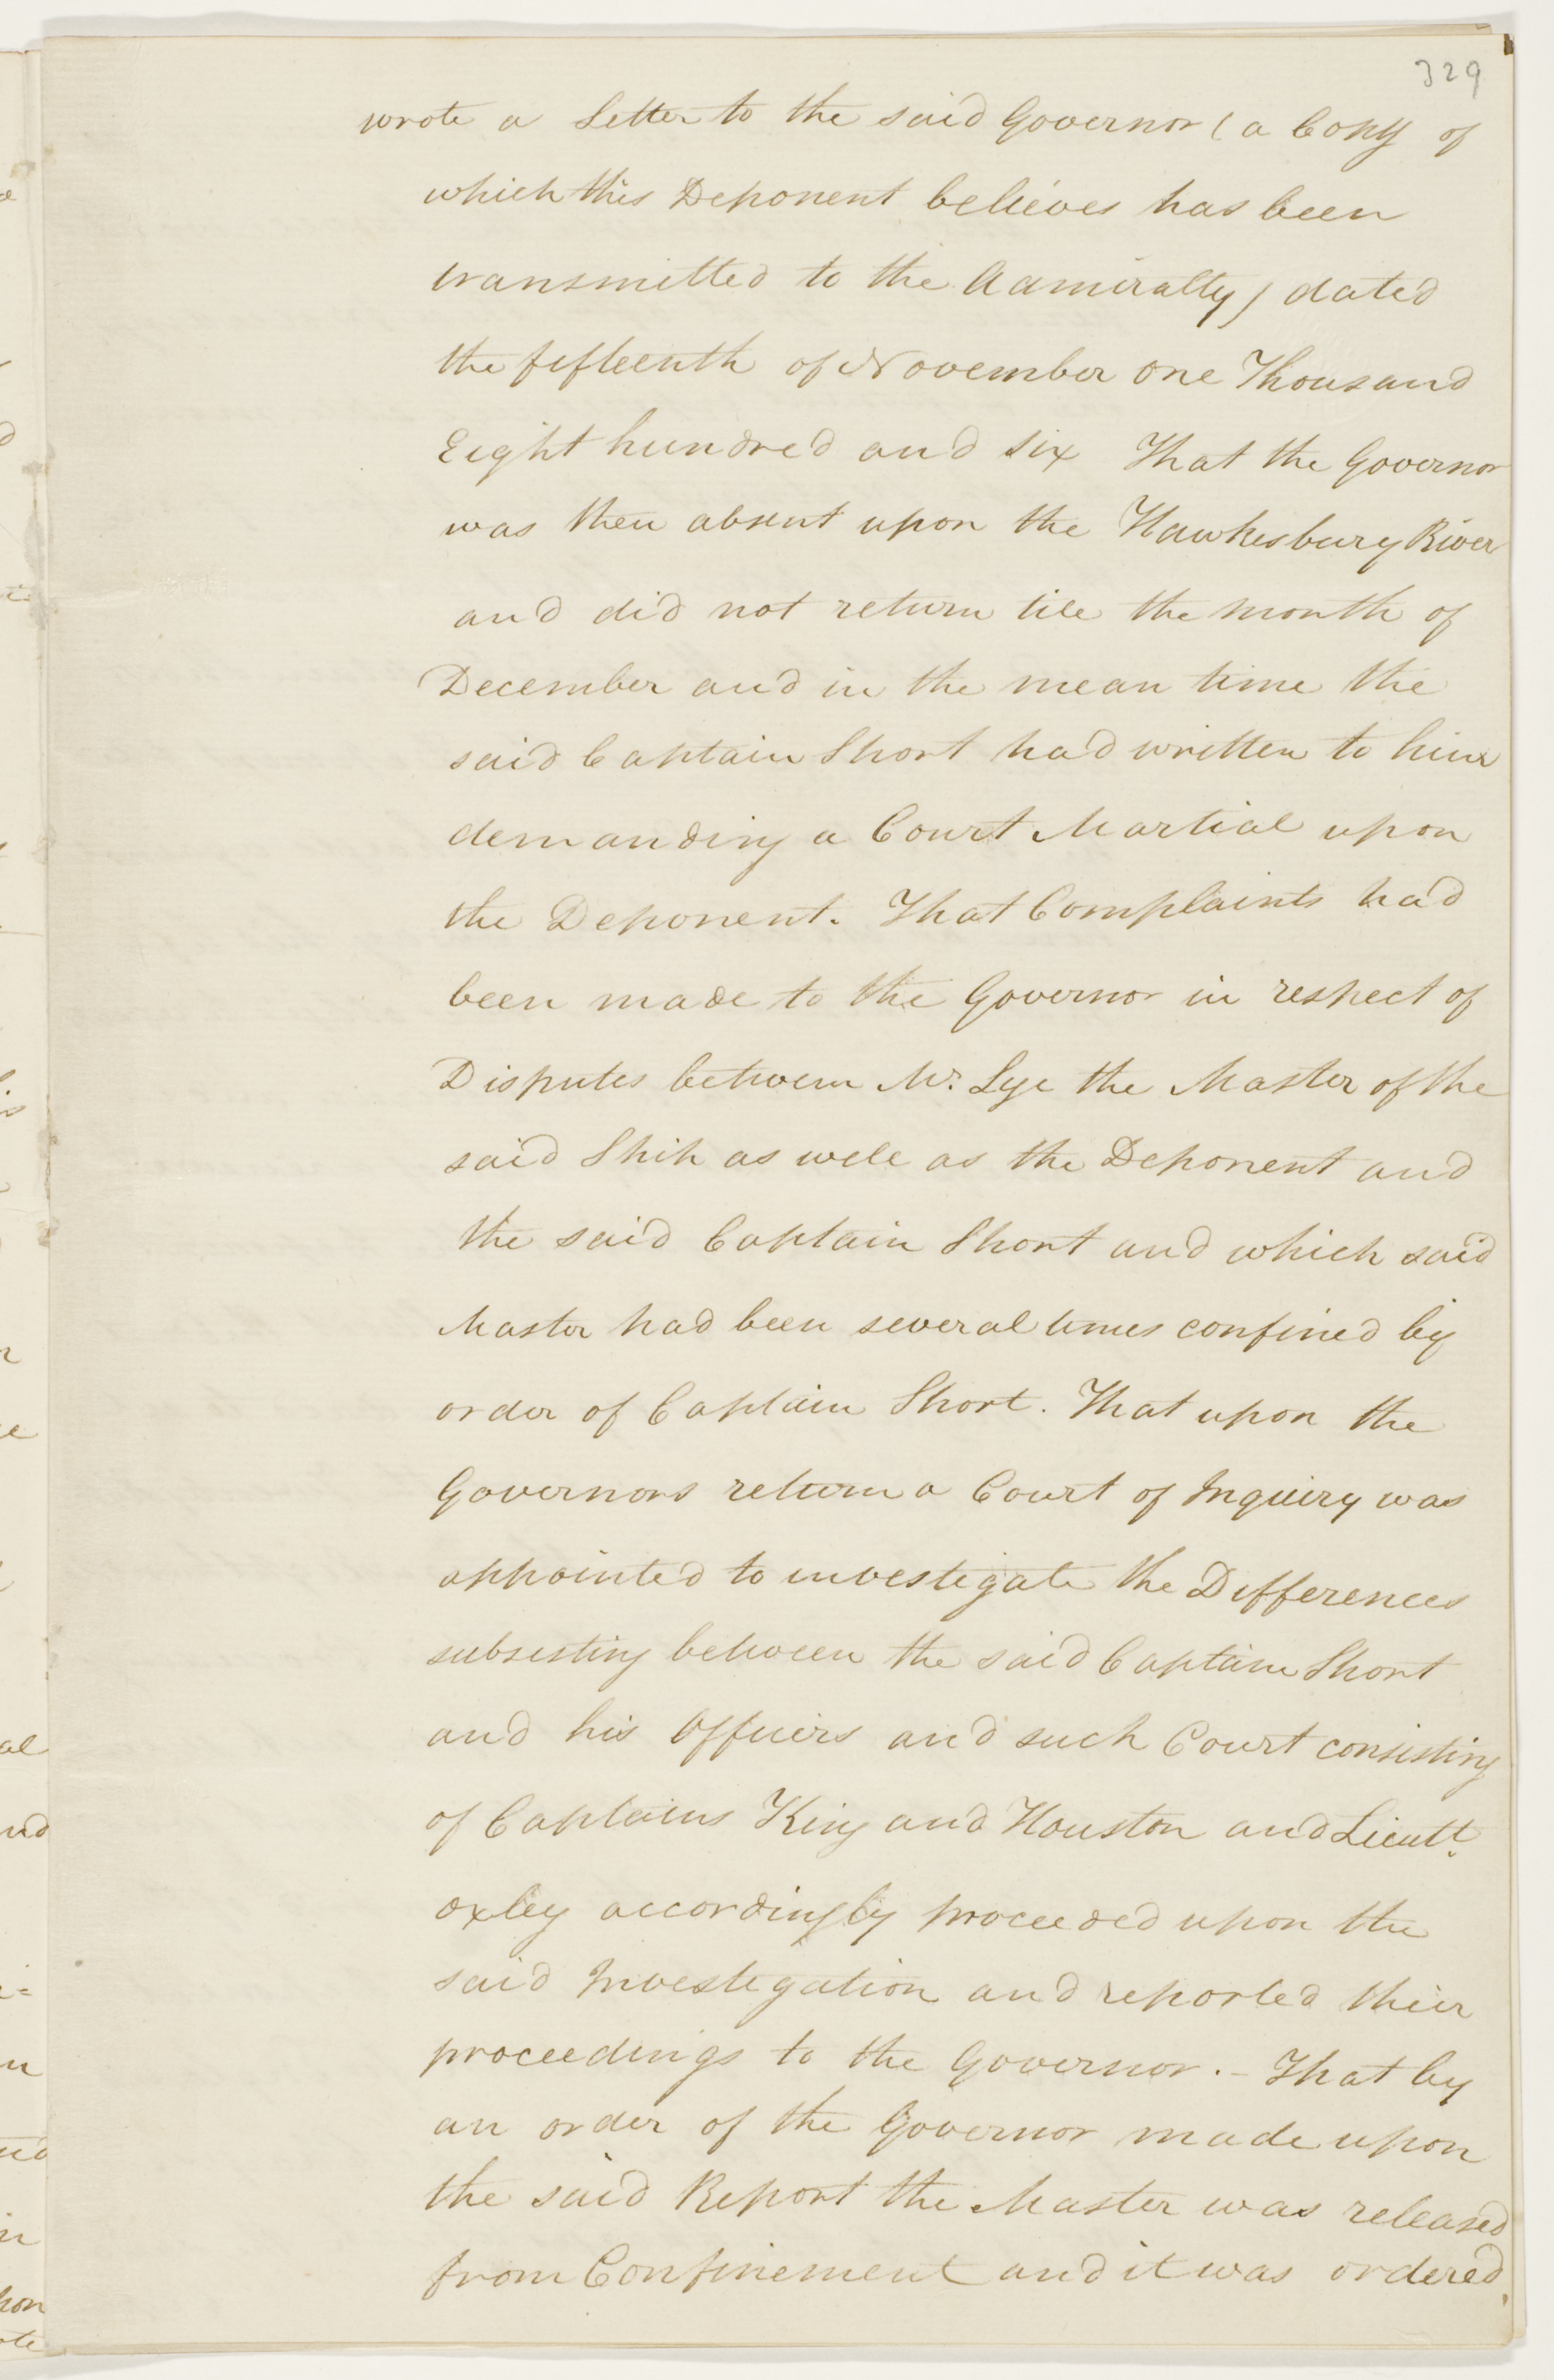 329
wrote a Letter to the said Governor (a Copy of
which this Deponent believes has been
transmitted to the Admiralty) dated
the fifteenth of November one Thousand
Eight hundred and six That the Governor
was then absent upon the Hawkesbury River
and did not return till the month of
December and in the mean time the
said Captain Short had written to him
demanding a Court Martial upon
the Deponent. That Complaints had
been made to the Governor in respect of
Disputes between Mr. Lye the Master of the
said Ship as well as the Deponent and
the said Captain Short and which said
Master had been several times confined by
order of Captain Short. That upon the
Governors return a Court of Inquiry was
appointed to investigate the Differences
subsisting between the said Captain Short
and his Officers and such Court consisting
of Captains King and Houston and Lieutt.
Oxley accordingly proceeded upon the
said Investigation and reported their
proceedings to the Governor. - That by
an order of the Governor made upon
the said Report the Master was released
from Confinement and it was ordered,